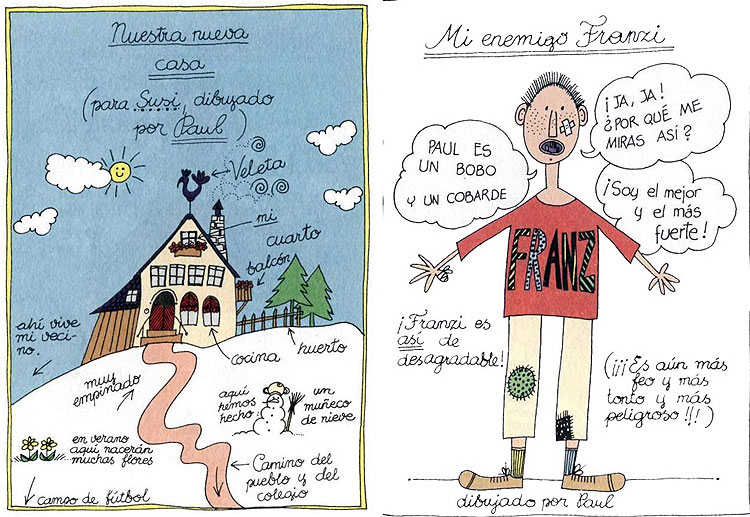 Nuestra nueva
casa
(para Susi, dibujado
por Paul)
Veleta
mi
cuarto
balcón
ahí vive
mi veci-
no.
cocina
huerto
muy
empinado
aquí
hemos
hecho:
un
muñeco
de nieve
en verano
aquí nacerán
muchas flores
Camino del
pueblo y del
colegio
campo de fútbol
Mi enemigo Franzi
¡JA, JA!
¿POR QUÉ ME
MIRAS ASÍ?
PAUL ES
UN BOBO
Y UN COBARDE
¡Soy el mejor
y el más
fuerte!
FRANZ
¡Franzi es
así de
desagradable!
(¡¡¡Es aún más
feo y más
tonto y más
peligroso!!!)
dibujado por Paul